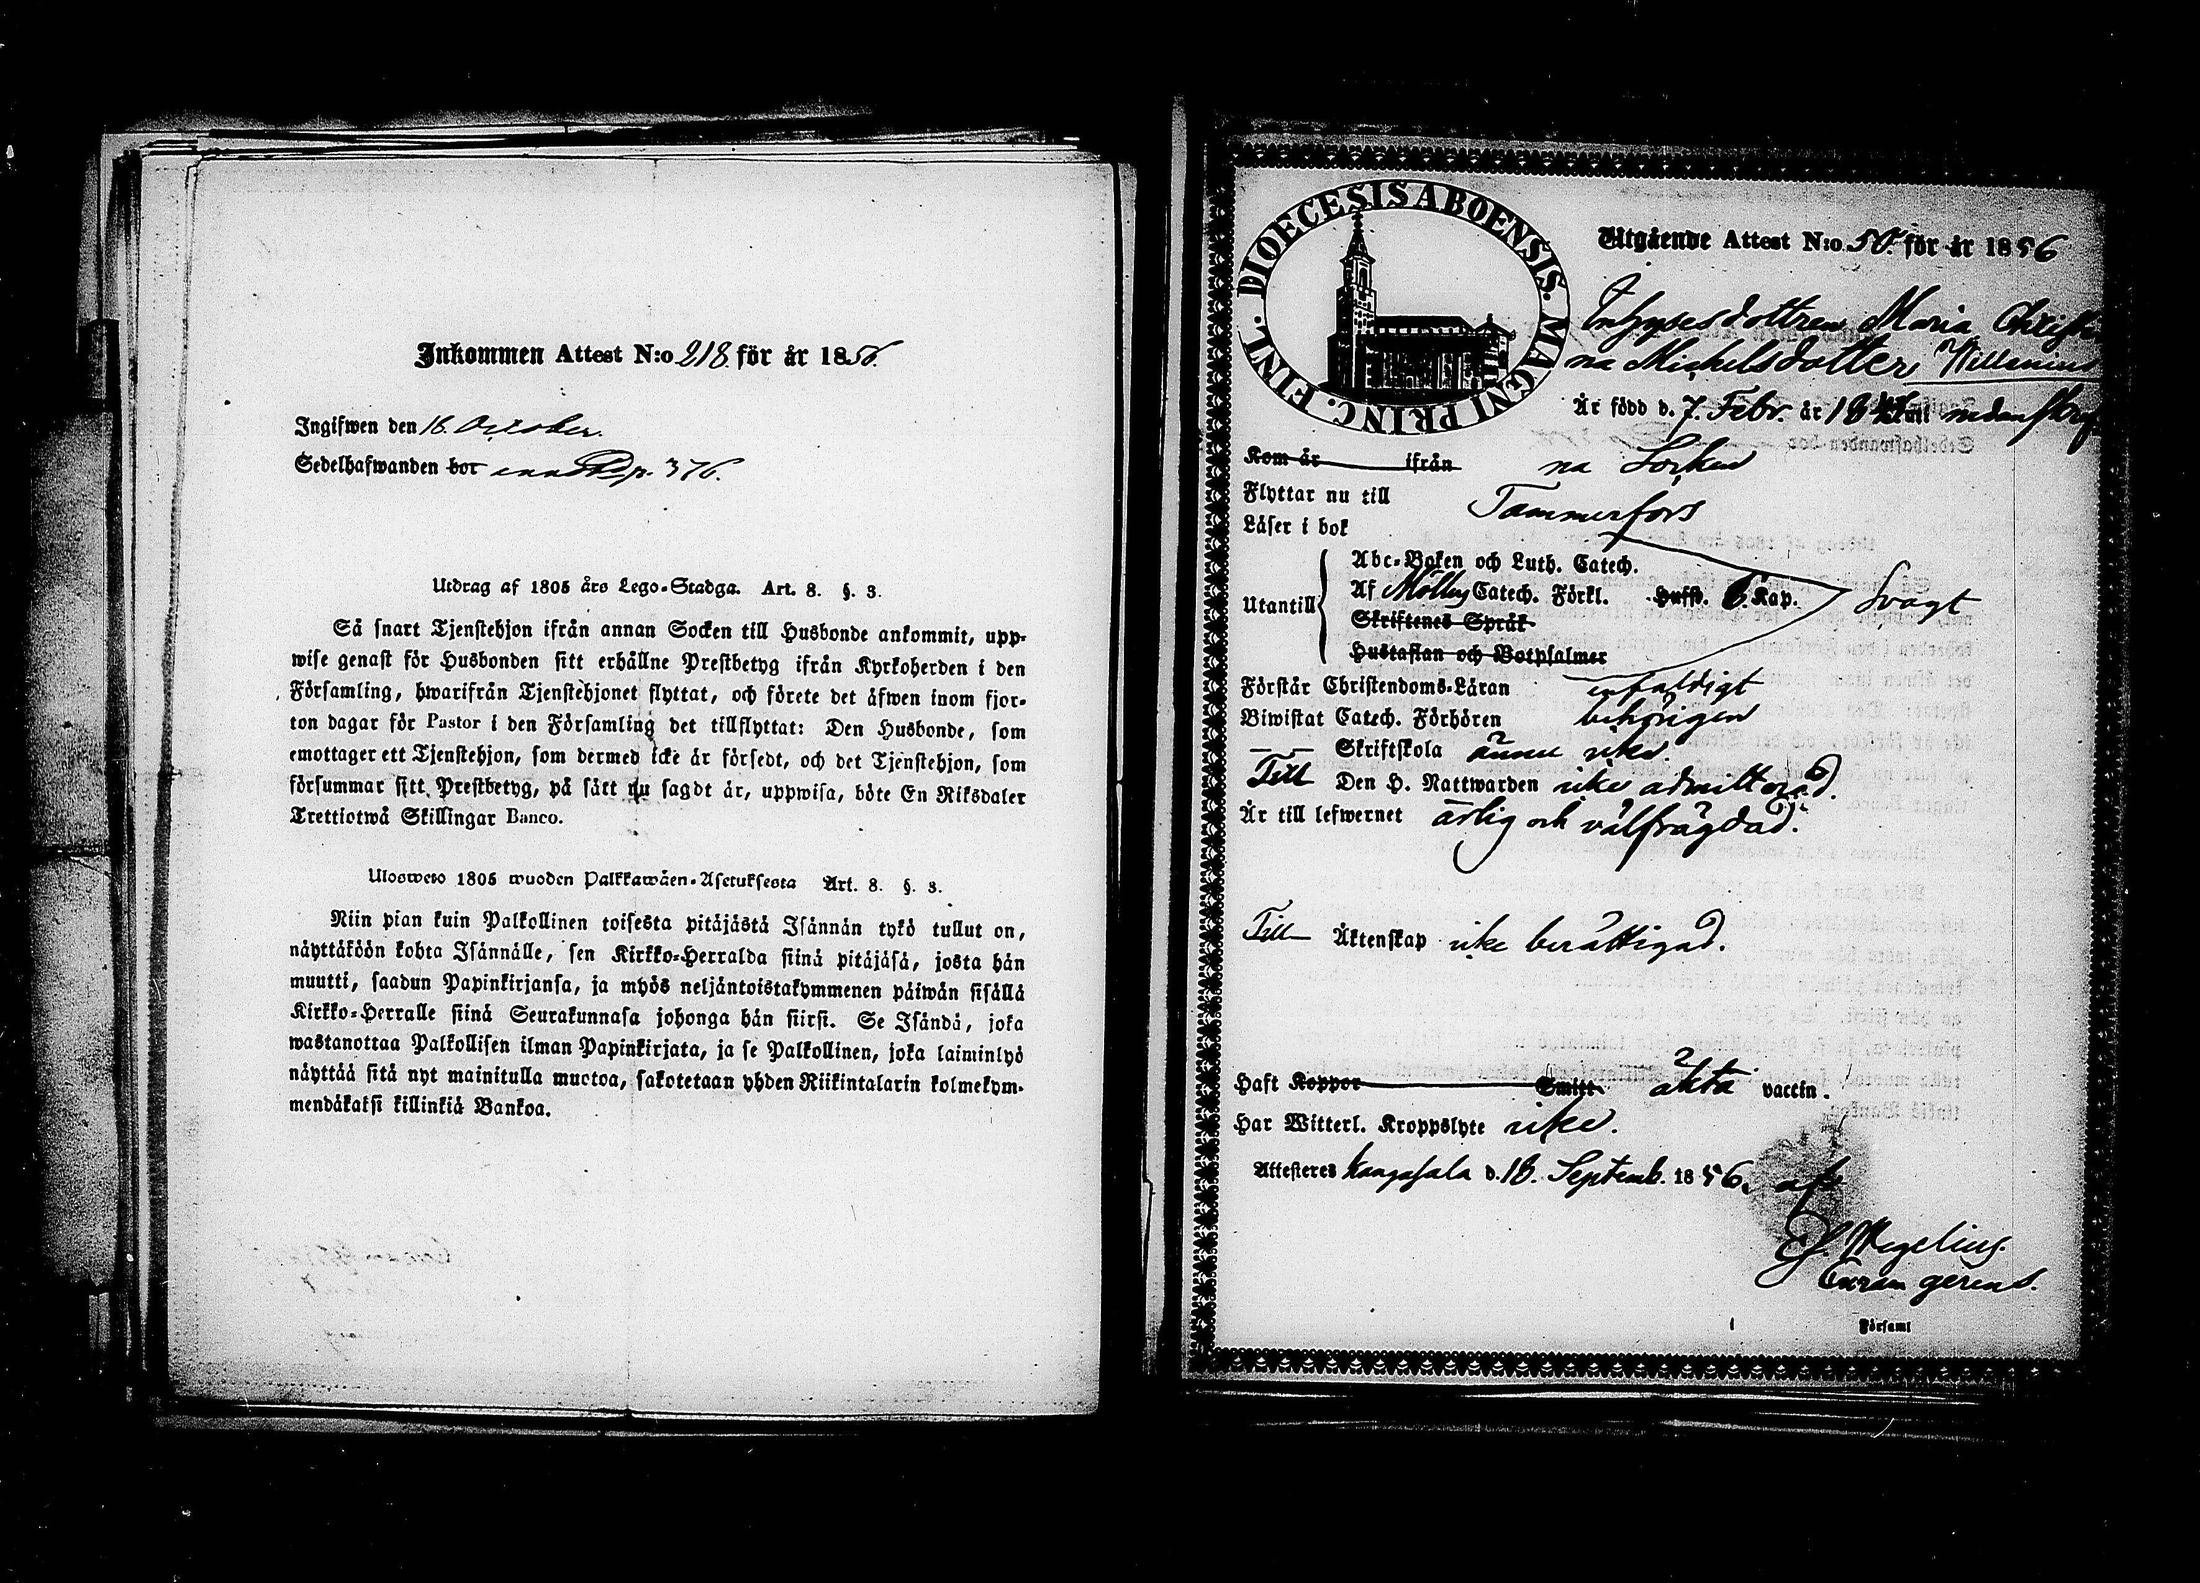 Inkommen Attest N:o 218. för år 1856.
Ingifwen den 16. October.
Sedelhafwanden bor p. 376.
Utdrag af 1805 års Lego-Stadga. Art. 8. §. 3.
Så snart Tjenstehjon ifrån annan Socken till Husbonde ankommit, upp-
wise genast för Husbonden sitt erhållne Prestbetyg ifrån Kyrkoherden i den
Församling, hwarifrån Tjenstehjonet flyttat, och förete det äfwen inom fjor-
ton dagar för Pastor i den Församling det tillflyttat: Den Husbonde, som
emottager ett Tjenstehjon, som dermed icke är försedt, och det Tjenstehjon, som
försummar sitt Prestbetyg, på sätt nu sagdt är, uppwisa, böte En Riksdaler
Trettiotwå Skillingar Banco.
Ulosweto 1805 wuoden Palkkawäen-Asetuksesta Art. 8. §. 3.
Niin pian kuin Palkollinen toisesta pitäjästä Isännän tykö tullut on,
näyttäköön kohta Isännälle, sen Kirkko-Herralda siinä pitäjäsä, josta hän
muutti, saadun Papinkirjansa, ja myös neljäntoistakymmenen päiwän sisällä
Kirkko-Herralle siinä Seurakunnasa johonga hän siirsi. Se Isändä, joka
wastanottaa Palkollisen ilman Papinkirjata, ja se Palkollinen, joka laiminlyö
näyttää sitä nyt mainitulla muotoa, sakotetaan yhden Riikintalarin kolmekym-
mendäkaksi killinkiä Bankoa.
DIOECESIS ABOENSIS. MAGNI PRINC. FINL.
Utgående Attest N:o 50. för år 1856
Inhysesdottren Maria Christi
na Michelsdotter Willenius
Är född d. 7. Febr. år 18 nedanskref
Kom år ifrån na Socken
Flyttar nu till Tammerfors
Läser i bok
Utantill
Abc-Boken och Luth. Catech.
Af Möllers Catech. Förkl. Hufst. 6. Kap. Svagt
Skriftenes Språk
Hustaflan och Botpsalmer
Förstår Christendoms-Läran enfaldigt
Biwistat Catech. Förhören behörigen
Skriftskola ännu icke.
Till Den H. Nattwarden icke admitterad.
Är till lefwernet ärlig och välfrägdad.
Till Äktenskap icke berättigad.
Haft Koppor Smitt. äkta vaccin.
Har Witterl. Kroppslyte icke.
Attesteres Kangasala d. 18. Septemb. 1856. af
Megelius.
Curam gerens.
Församl